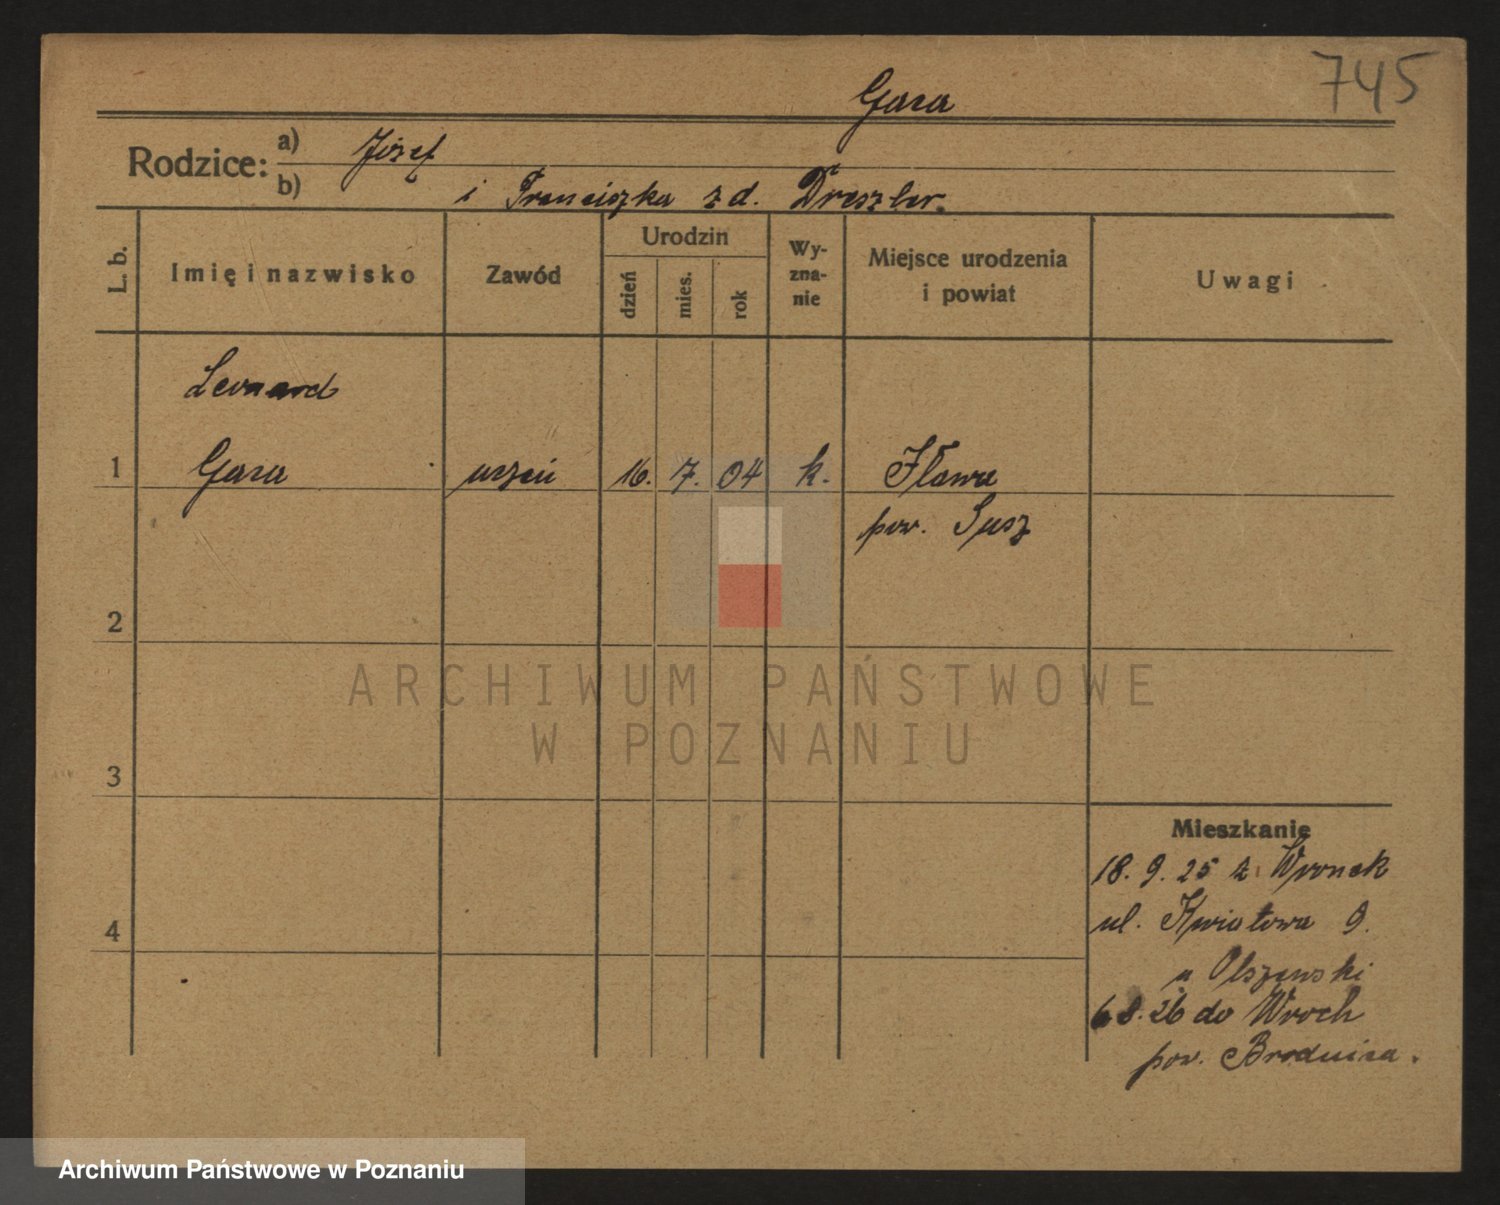 745
Gara
Rodzice: a) Józef
b) i Franciszka z d. Dreszler.
L. b.
Imię i nazwisko
Zawód
Urodzin
dzień
mies.
rok
Wy-
zna-
nie
Miejsce urodzenia
i powiat
Uwagi
Leonard
1 Gara uczeń 16. 7. 04 k. Iława
pow. Susz
2
3
4
Mieszkanie
18. 9. 25 z Wronek
ul. Kwiatowa 9.
u Olszewski
6 8. 26 do Wroch
pow. Brodnica.
ARCHIWUM PAŃSTWOWE
W POZNANIU
Archiwum Państwowe w Poznaniu